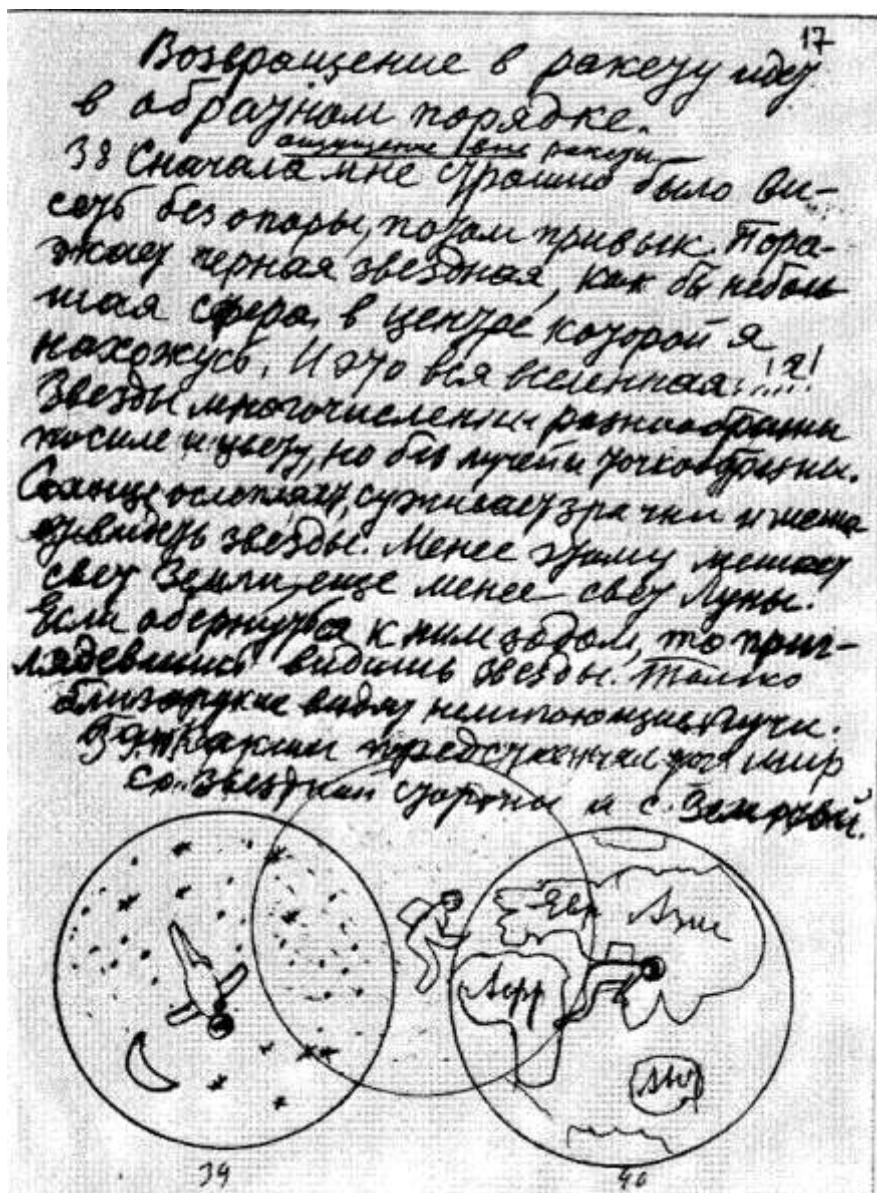 17
Возвращение в ракету идет
в обратном порядке.
ощущение вне ракеты
38 Сначала мне страшно было ви-
сеть без опоры, потом привык. Пора-
жает черная звездная, как бы неболь
шая сфера, в центре которой я
нахожусь. И это вся вселенная!
Звезды многочисленны разнообразны
по силе и цвету, но без лучей и точкообразны.
Солнце ослепляет, суживает зрачки и меша
ет видеть звезды. Менее этому мешает
свет Земли, еще менее свет Луны.
Если обернуться к ним задом, то приг-
лядевшись видишь звезды. Только
близорукие видят лучи.
39 мир
со звездной стороны и с Земной.
Евр
Азия
Афр
Авс
39
40